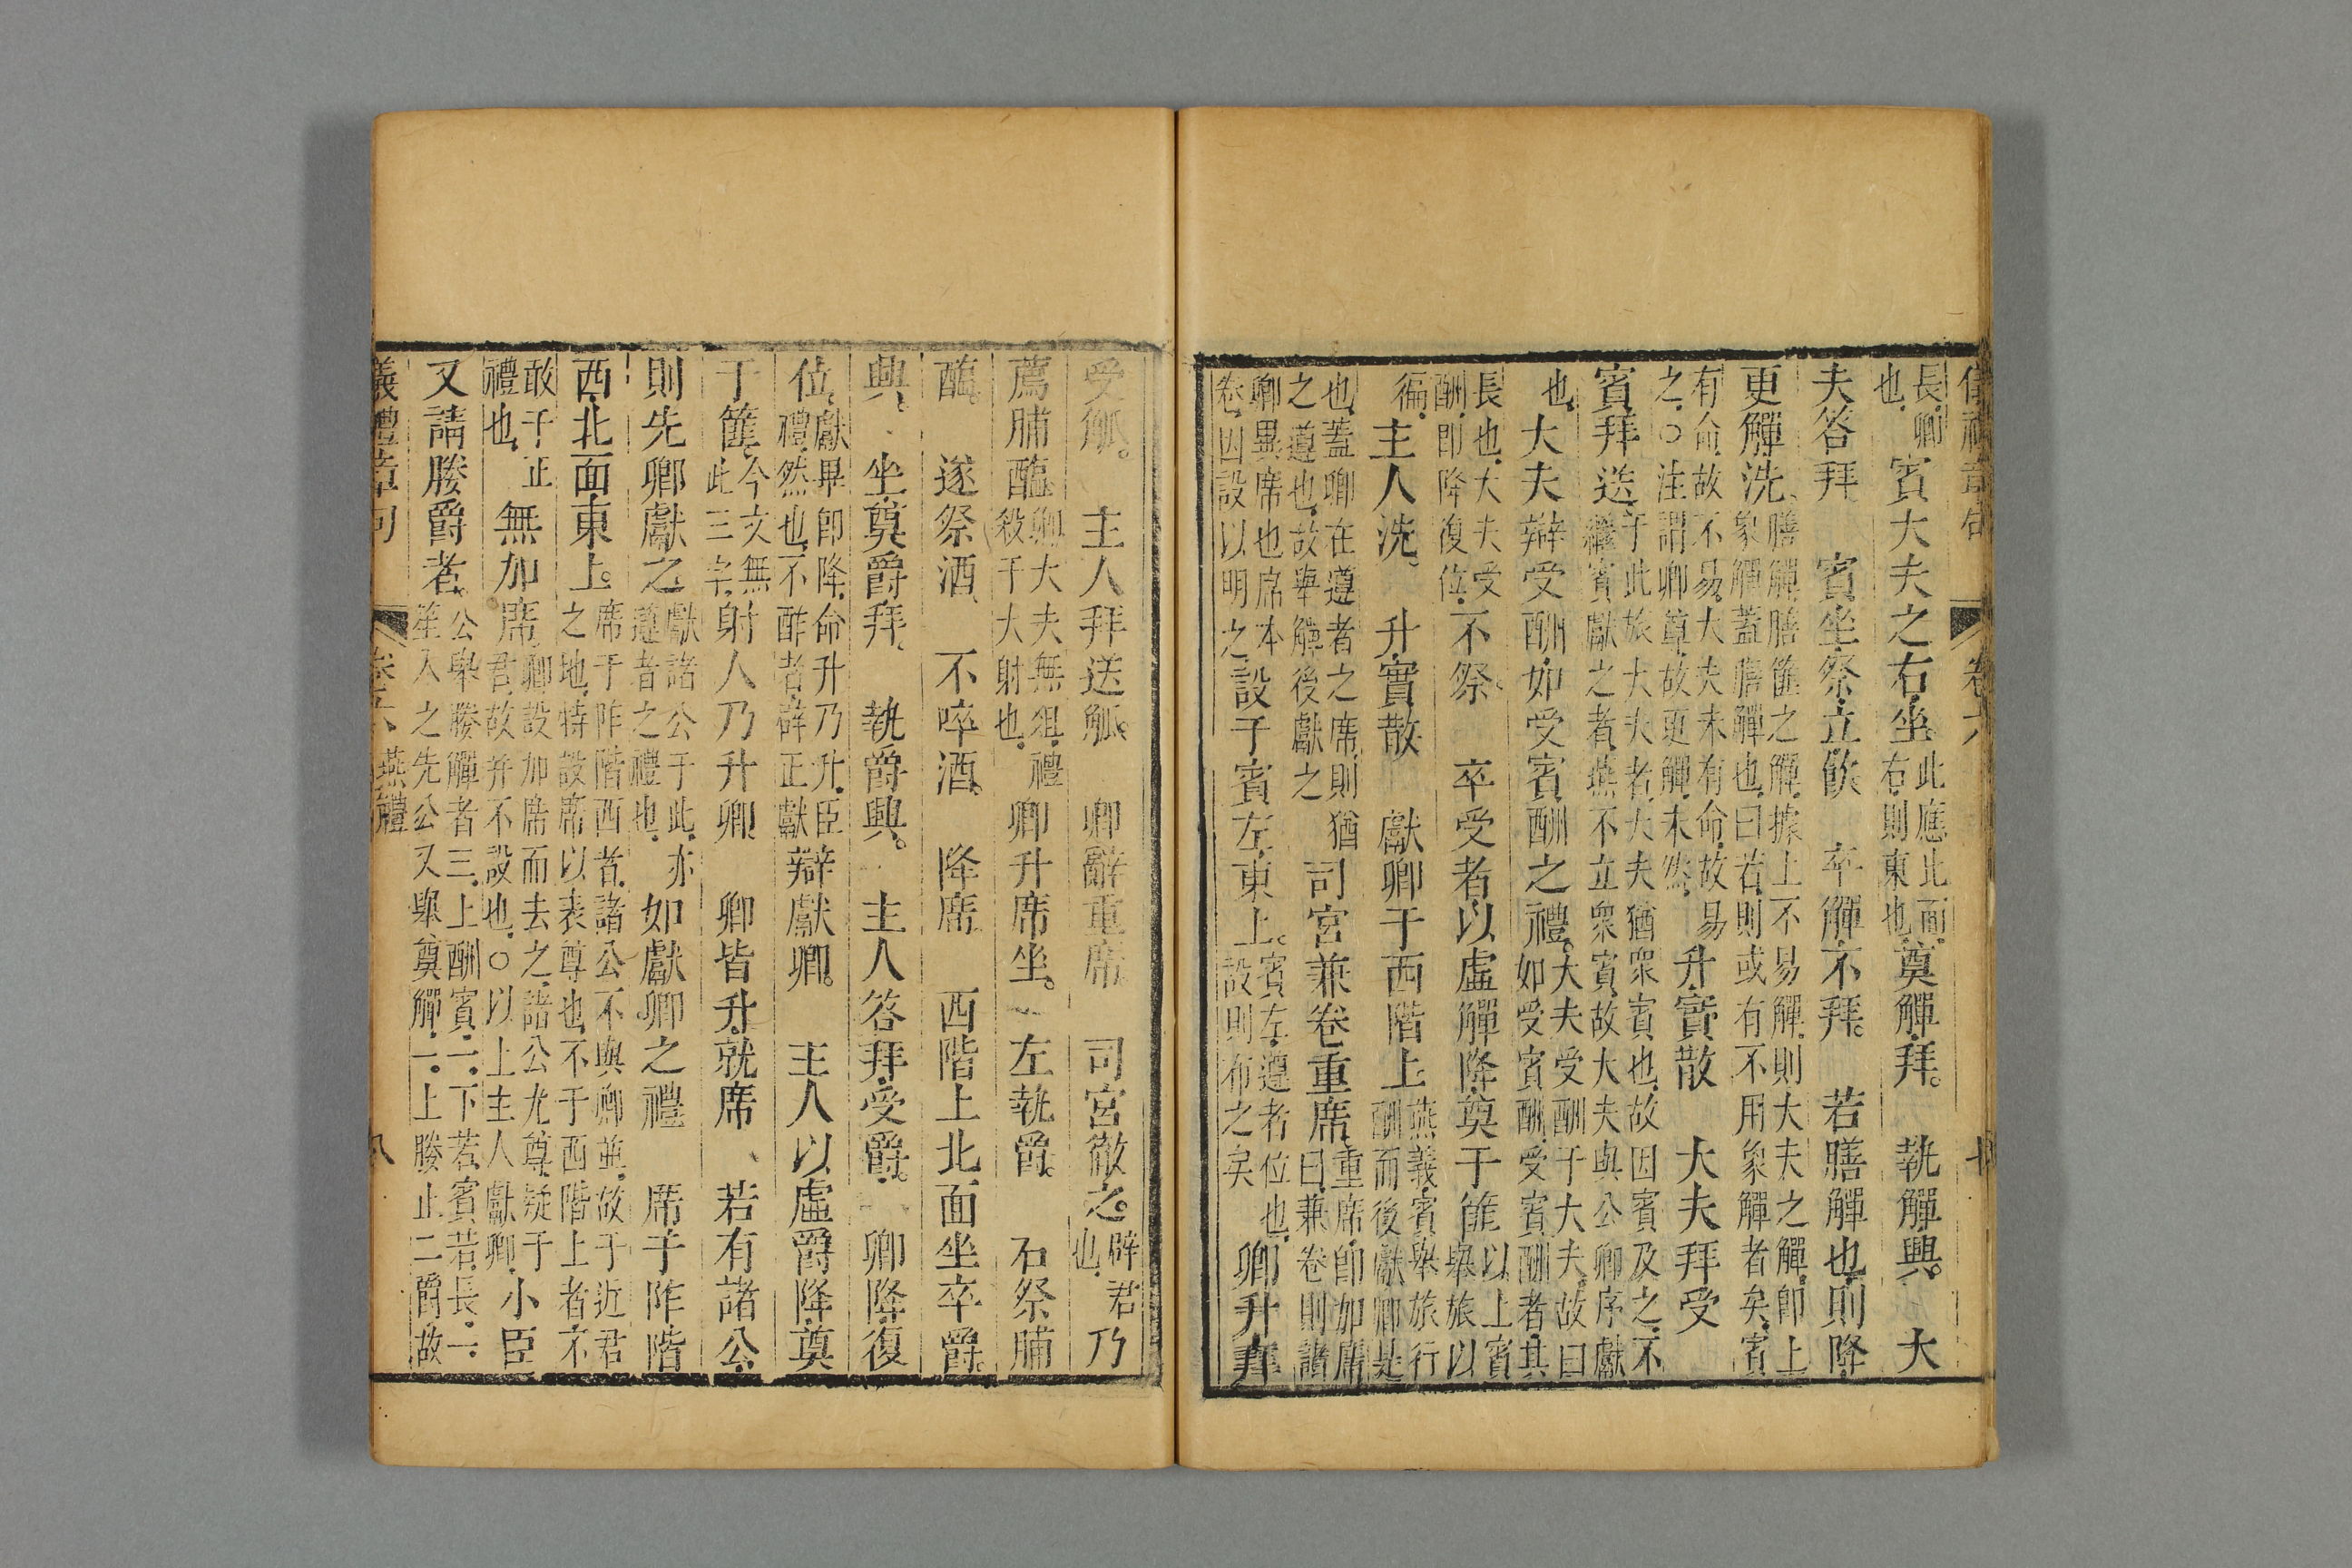 儀禮章句 卷六 七
長卿也賓大夫之右坐此應北面右則東也奠觶拜 執觶興 大
夫答拜 賓坐祭立飲 卒觶不拜 若膳觶也則降
更觶洗膳觶膳篚之觶據上不易觶則大夫之觶即上象觶蓋膳觶也曰若則或有不用象觶者矣賓
有命故不易大夫未有命故易之○注謂卿尊故更觶未然升實散 大夫拜受
賓拜送于此旅大夫者大夫猶衆賓也故因賓及之不繼賓獻之者燕不立衆賓故大夫與公卿序獻
也大夫辯受酬如受賓酬之禮大夫受酬于大夫故曰如受賓酬受賓酬者其
長也大夫受酬即降復位不祭 卒受者以虛觶降奠于篚以上賓舉旅以
徧主人洗 升實散 獻卿于西階上燕義賓舉旅行酬而後獻卿是
也蓋卿在遵者之席則猶之遵也故舉觶後獻之司宮兼卷重席重席即加席曰兼卷則諸
卿異席也席本卷因設以明之設于賓左東上賓左遵者位也設則布之矣卿升拜
受觚 主人拜送觚 卿辭重席 司宮徹之辟君也乃
薦脯醢卿大夫無俎禮殺于大射也卿升席坐 左執爵 右祭脯
醢 遂祭酒 不啐酒 降席 西階上北面坐卒爵
興 坐奠爵拜 執爵興 主人答拜受爵 卿降復
位獻畢即降命升乃升臣禮然也不酢者辟正獻辯獻卿 主人以虛爵降奠
于篚今文無此三字射人乃升卿 卿皆升就席 若有諸公
則先卿獻之獻諸公于此亦遵者之禮也如獻卿之禮 席于阼階
西北面東上席于阼階西者諸公不與卿並故于近君之地特設席以表尊也不于西階上者不
敢干正禮也無加席卿設加席而去之諸公尤尊疑于君故并不設也○以上主人獻卿小臣
又請媵爵者公舉媵觶者三上酬賓一下若賓若長一笙入之先公又舉奠觶一上媵止二爵故
儀禮章句 卷六 燕禮 八